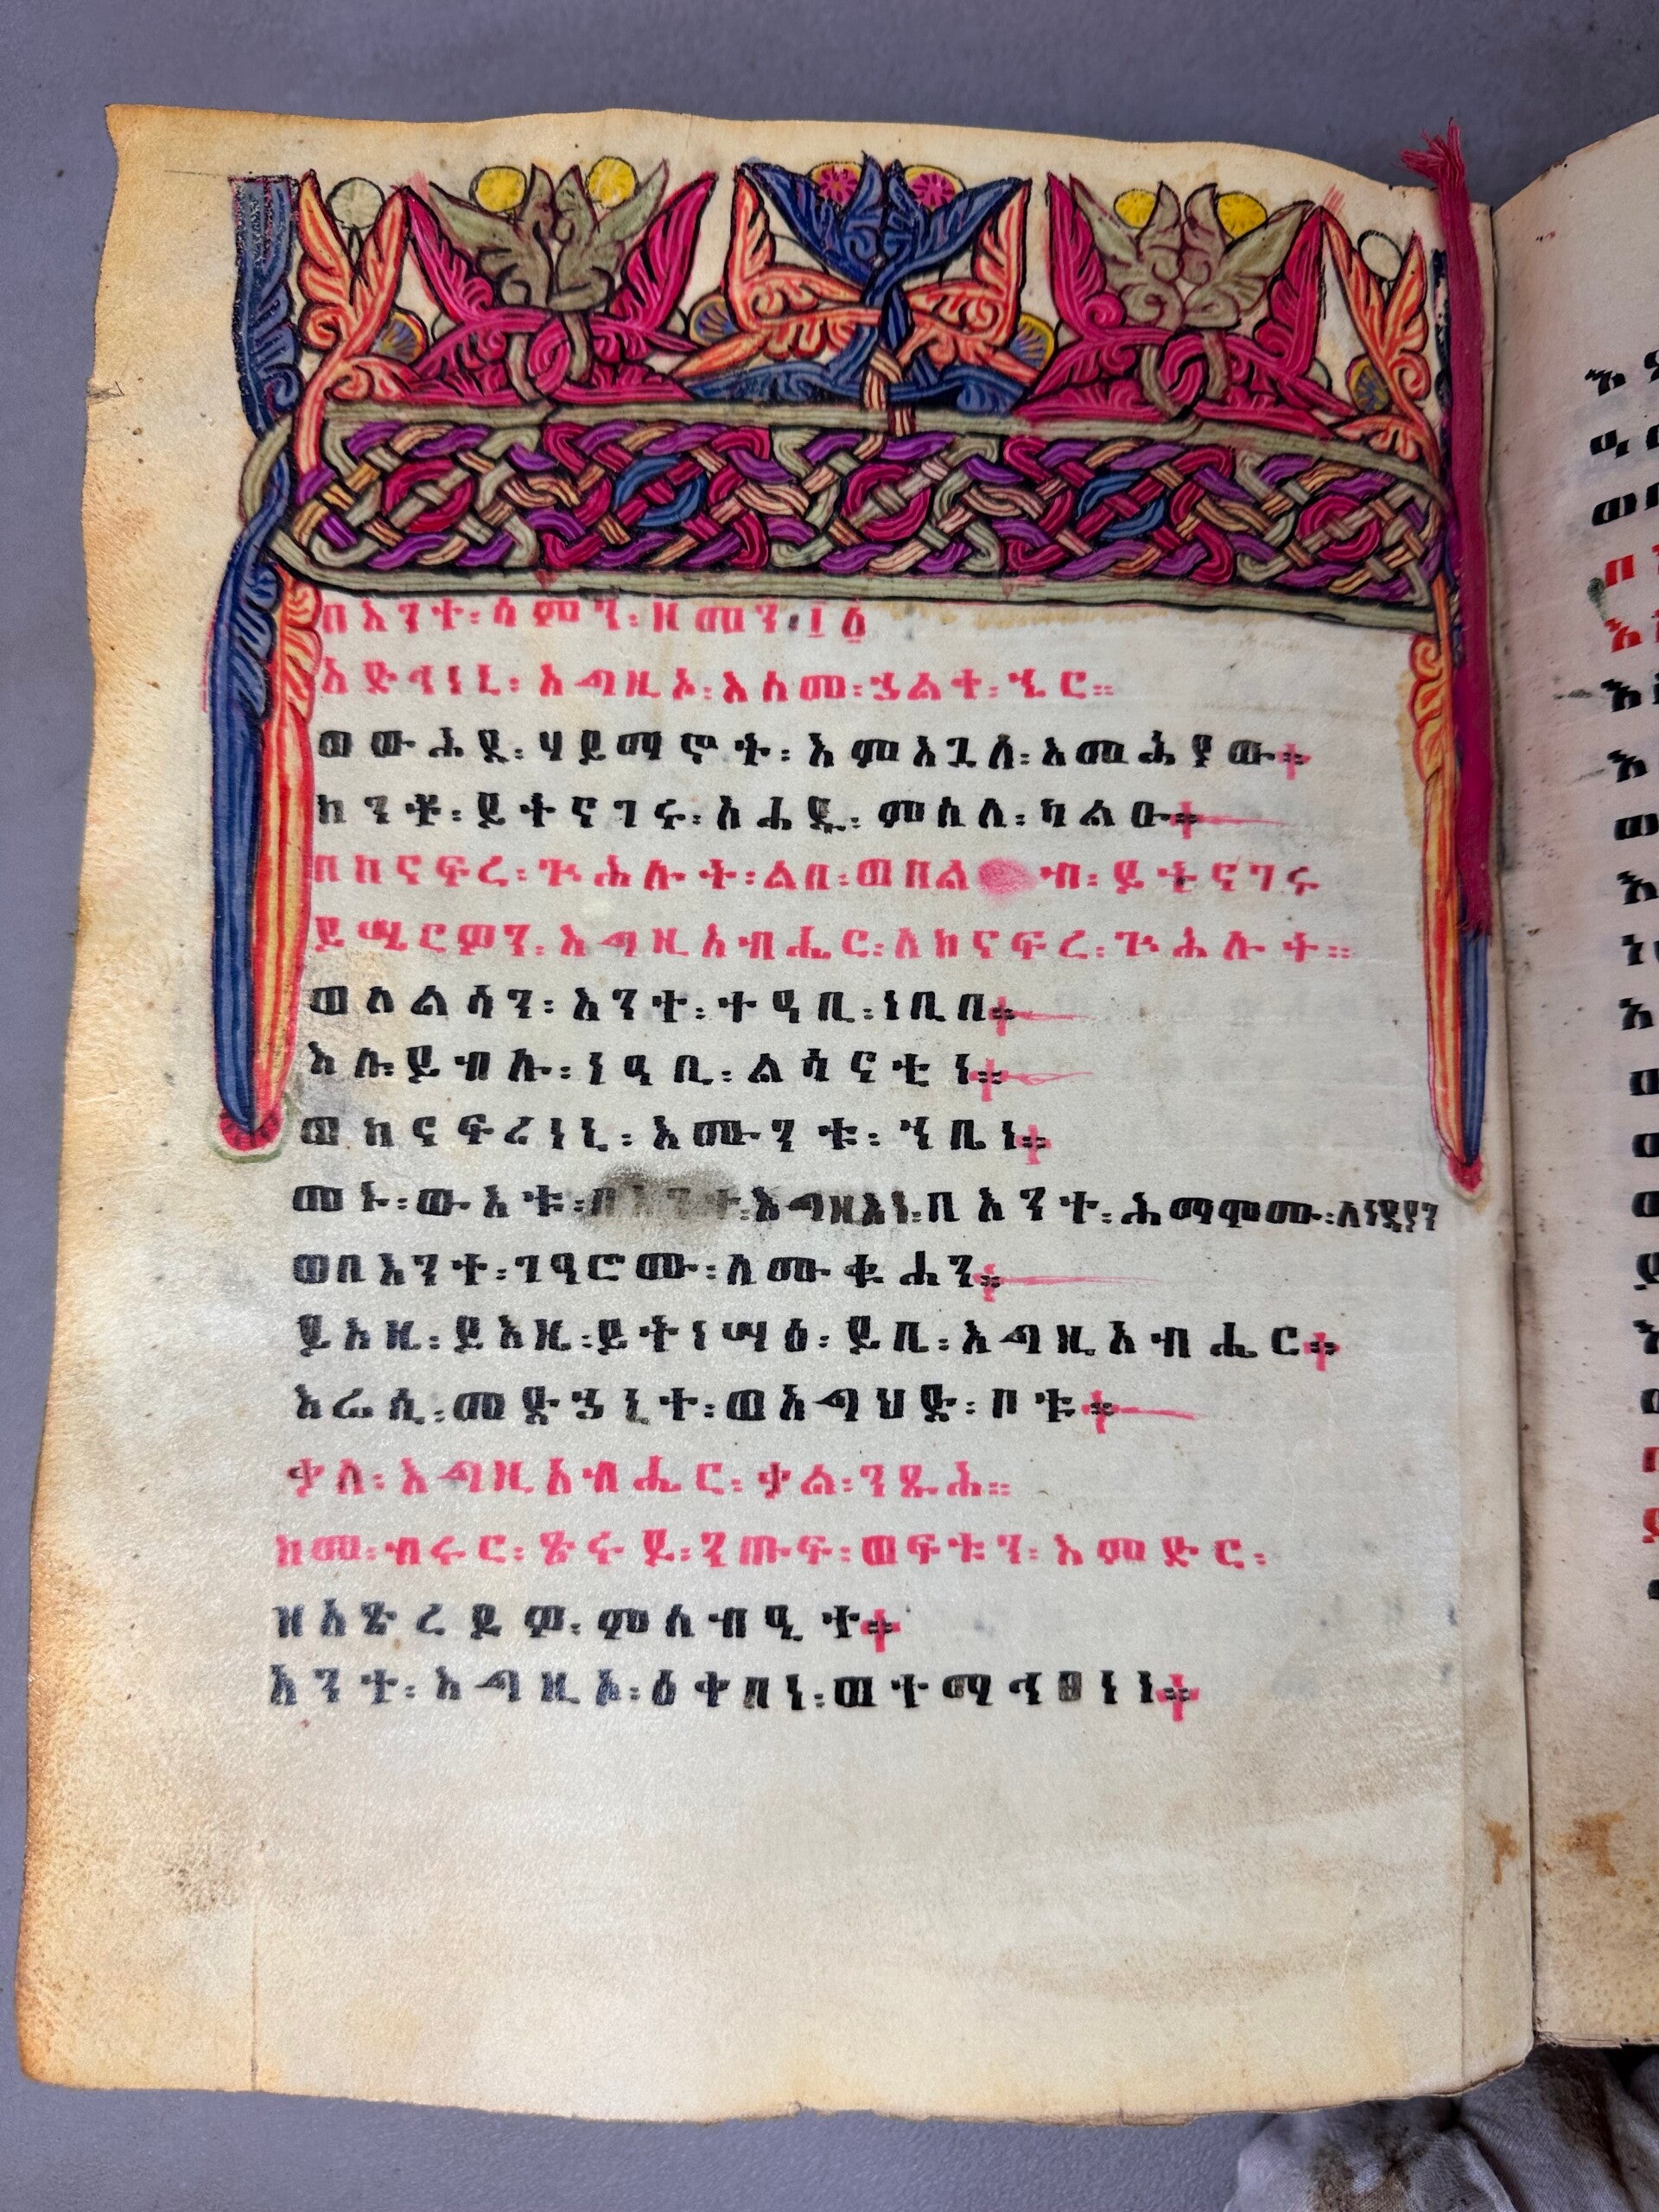 በእንተ፡ሰምን፡ዘመን፡፲፩
አድኅነኒ፡እግዚኦ፡እስመ፡ኃልቀ፡ኄር።
ወውሕደ፡ሃይማኖት፡እምእጓለ፡እመሕያው።
ከንቶ፡ይትናገሩ፡አሐዱ፡ምስለ፡ካልዑ።
በከናፍረ፡ጕሕሉት፡ልበ፡ወበልብ፡ይትናገሩ
ይሤርዎን፡እግዚአብሔር፡ለከናፍረ፡ጕሕሉት።
ወለልሳን፡እንተ፡ተዓቢ፡ነቢበ።
እለ፡ይብሉ፡ነዓቢ፡ልሳናቲነ።
ወከናፍሪነኒ፡እሙንቱ፡ኀቤነ።
መኑ፡ውእቱ፡እግዚእነ፡በእንተ፡ሕማሞሙ፡ለነዳያን
ወበእንተ፡ገዓሮሙ፡ለሙቁሓን።
ይእዜ፡ይእዜ፡ይትነሣዕ፡ይቤ፡እግዚአብሔር።
እሬሲ፡መድኃኒተ፡ወእግህድ፡ቦቱ።
ቃለ፡እግዚአብሔር፡ቃል፡ንጹሕ።
ከመ፡ብሩር፡ጽሩይ፡ንጡፍ፡ወፍቱን፡እምድር፡
ዘአጽረይዎ፡ምስብዒተ።
አንተ፡እግዚኦ፡ዕቀበነ፡ወተማኅፀነነ።